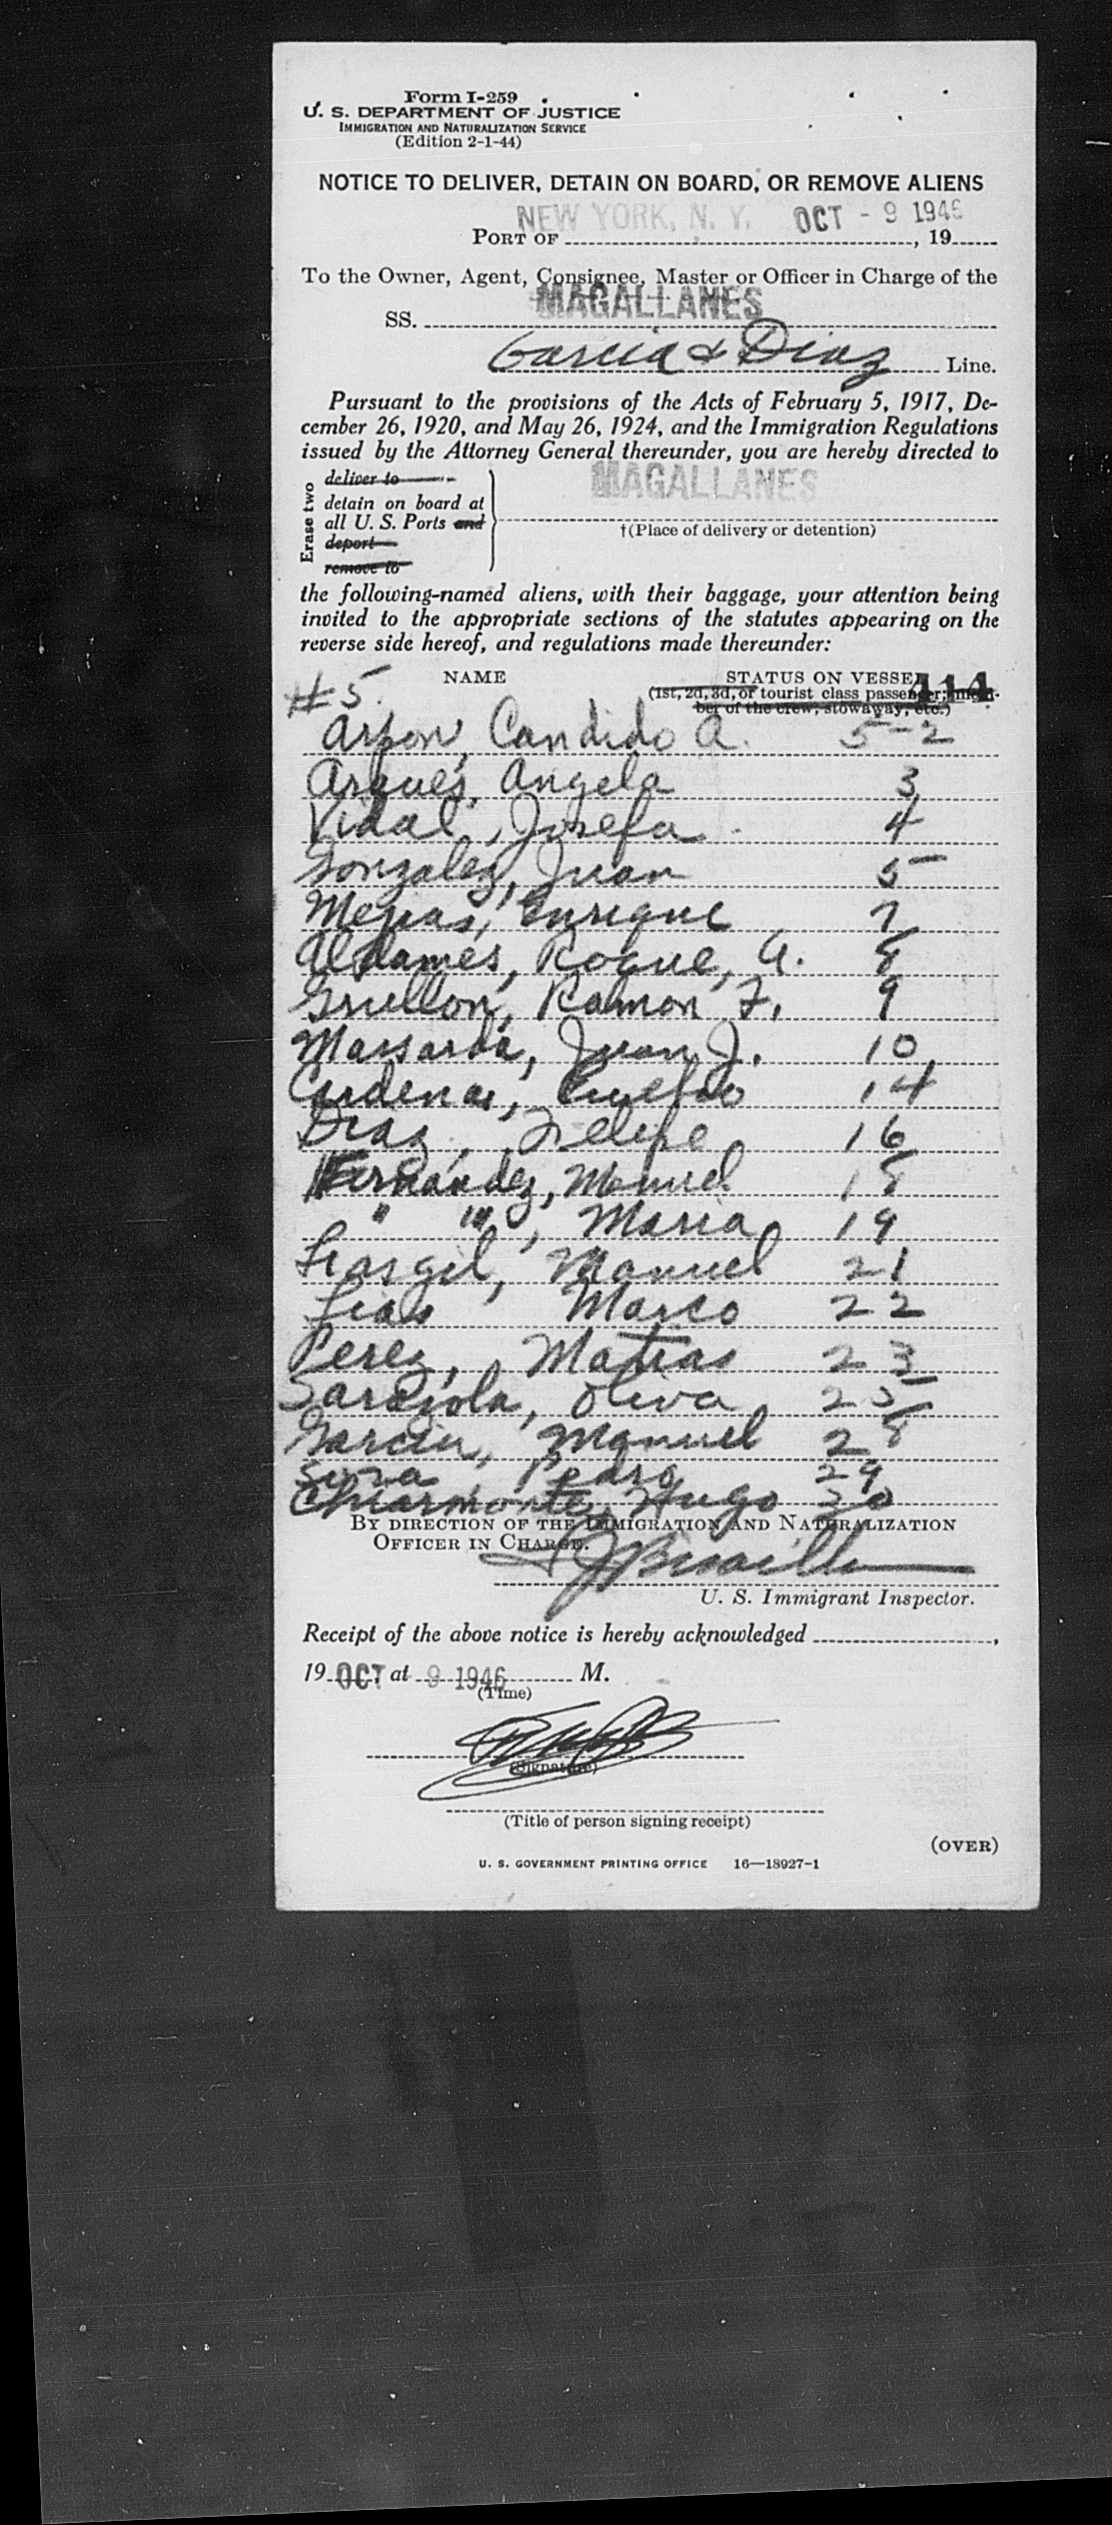 Form I-259
U. S. DEPARTMENT OF JUSTICE
IMMIGRATION AND NATURALIZATION SERVICE
(Edition 2-1-44)
NOTICE TO DELIVER, DETAIN ON BOARD, OR REMOVE ALIENS
NEW YORK, N. Y. OCT - 9 1946
PORT OF , 19
To the Owner, Agent, Consignee, Master or Officer in Charge of the
SS. MAGALLANES
Garcia & Diaz Line.
Pursuant to the provisions of the Acts of February 5, 1917, De-
cember 26, 1920, and May 26, 1924, and the Immigration Regulations
issued by the Attorney General thereunder, you are hereby directed to
Erase two
deliver to
detain on board at
all U. S. Ports and
deport
remove to
MAGALLANES
†(Place of delivery or detention)
the following-named aliens, with their baggage, your attention being
invited to the appropriate sections of the statutes appearing on the
reverse side hereof, and regulations made thereunder:
#5
NAME STATUS ON VESSEL 414
(1st, 2d, 3d, or tourist class passenger; mem-
ber of the crew, stowaway, etc.)
Candido A. 5-2
Arques, Angela 3
Vidal, Josefa 4
Gonzalez, Juan 5
Mejias, Enrique 7
Roque, A. 8
Grullon, Ramon F. 9
Juan J. 10
Cardenas, 14
Diaz, Felipe 16
Fernandez, Manuel 18
" ", Maria 19
Manuel 21
Marco 22
Perez, Matias 23
Oliva 25
Garcia, Manuel 28
Pedro 29
Chiarmonte, Hugo 30
BY DIRECTION OF THE IMMIGRATION AND NATURALIZATION
OFFICER IN CHARGE.
U. S. Immigrant Inspector.
Receipt of the above notice is hereby acknowledged ,
19 OCT at 9 1946 M.
(Time)
(Signature)
(Title of person signing receipt)
(OVER)
U. S. GOVERNMENT PRINTING OFFICE 16—18927-1